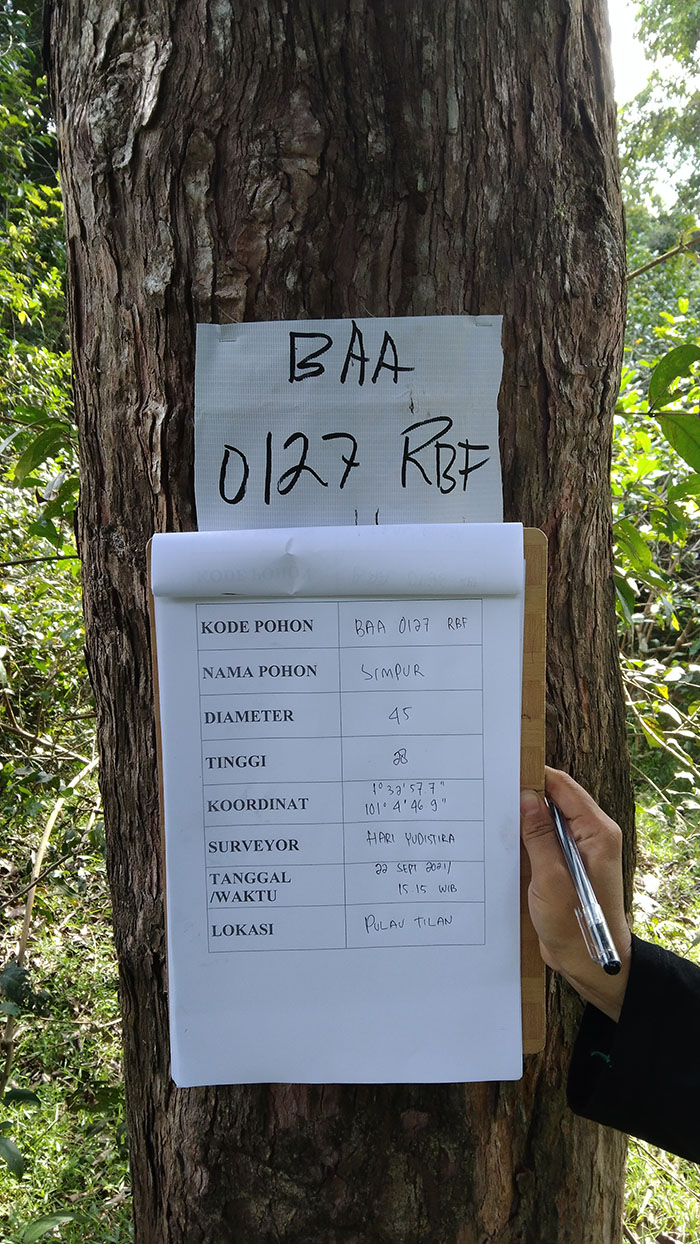 BAA
0127 RBF
KODE POHON BAA 0127 RBF
NAMA POHON SIMPUR
DIAMETER 45
TINGGI 28
KOORDINAT 1° 32' 57 7"
101° 4' 46 9"
SURVEYOR HARI YUDISTIRA
TANGGAL 22 SEPT 2021/
/WAKTU 15 15 WIB
LOKASI PULAU TILAN